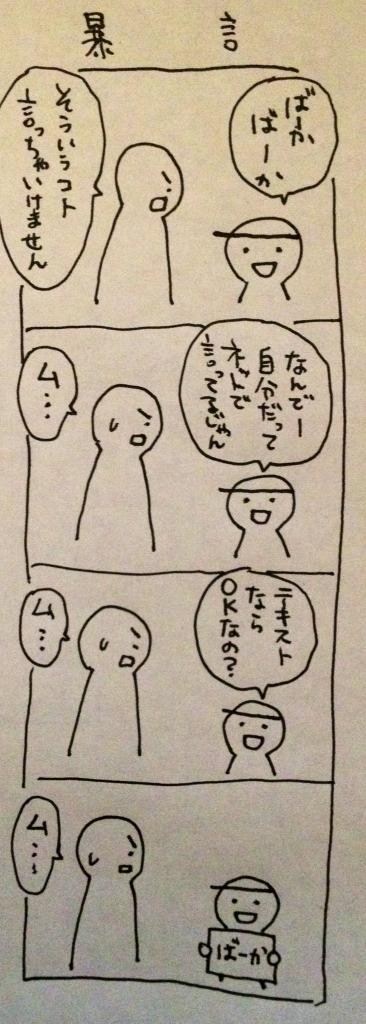 暴言
ばーか
ばーか
そういうコト
言っちゃいけません
なんでー
自分だって
ネットで
言ってるじゃん
ム…
テキスト
なら
OKなの?
ム…
ばーか
ム…